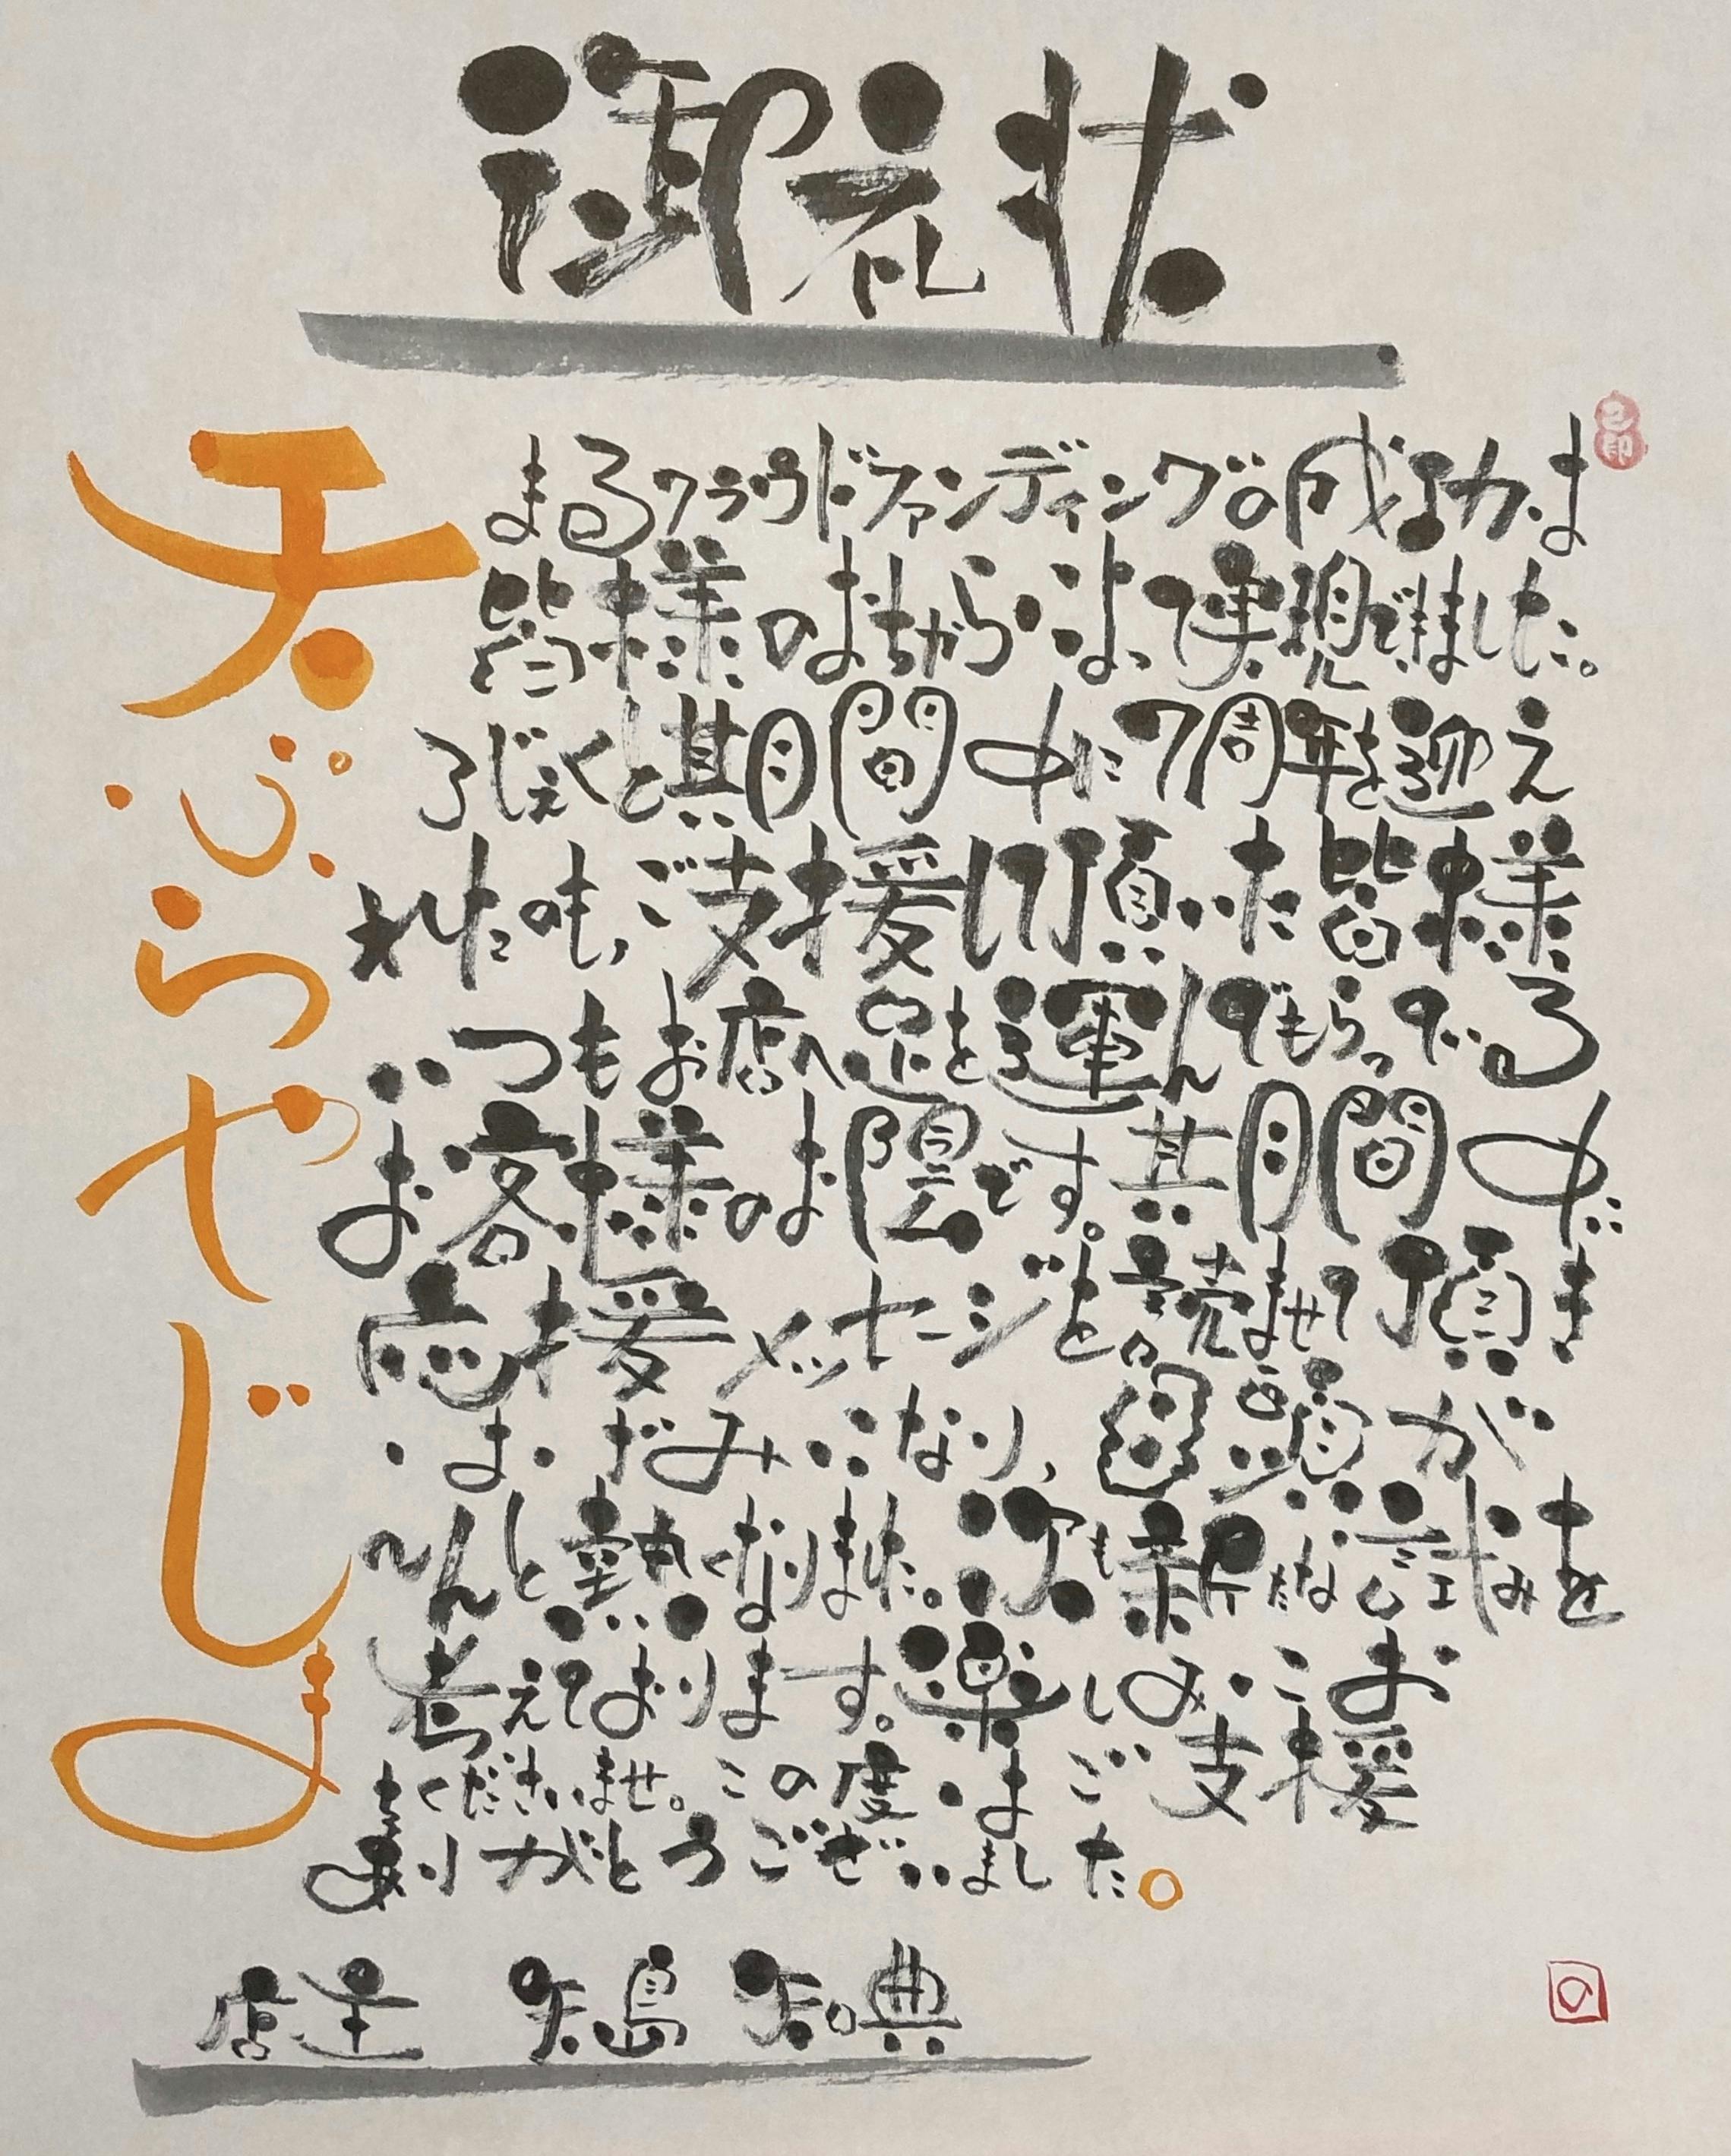 御礼状
まるクラウドファンディングの成功は
皆様のおちからによって実現できました。
ろじぇくと期間中に7周年を迎え
れたのも、ご支援頂いた皆様
いつもお店へ足を運んでもらってる
お客様のお陰です。期間中
応援メッセージを読ませて頂き
なり、目頭が
じんと熱くなりました。次も新たな試みを
考えております。楽しみにお
まちくださいませ。この度はご支援
ありがとうございました。
天ぷらやじま
店主 矢島 知典